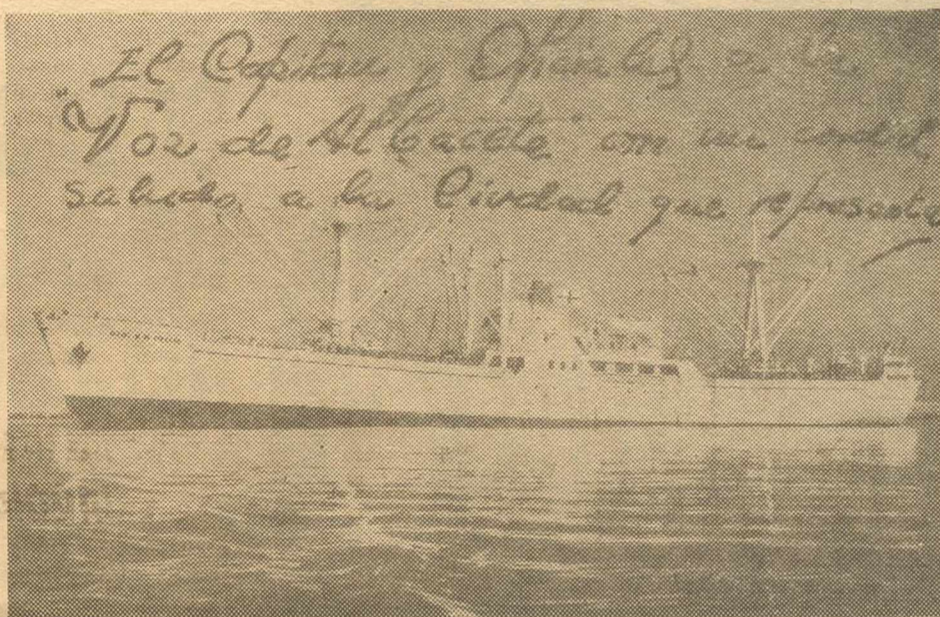 El Capitan y Oficiales a la
"Voz de Albacete" con un cordial
saludo a la Ciudad que representa